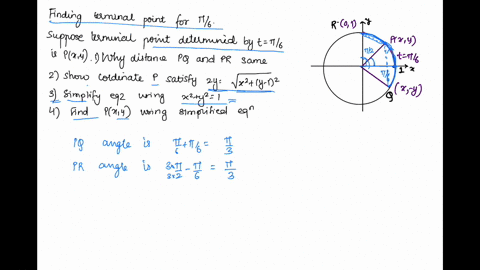 Finding terminal point for π/6
Suppose terminal point determined by t=π/6
is P(x,y). 1) Why distance PQ and PR same
2) Show cordinate P satisfy 2y = √x²+(y-1)²
3) Simplify eq2 using x²+y²=1
4) Find P(x,y) using simplified eqⁿ
PQ angle is π/6 + π/6 = π/3
PR angle is 3×π/3×2 - π/6 = π/3
R (0,1)
y
P(x,y)
t=π/6
π/6
π/6
1
x
Q
(x,-y)